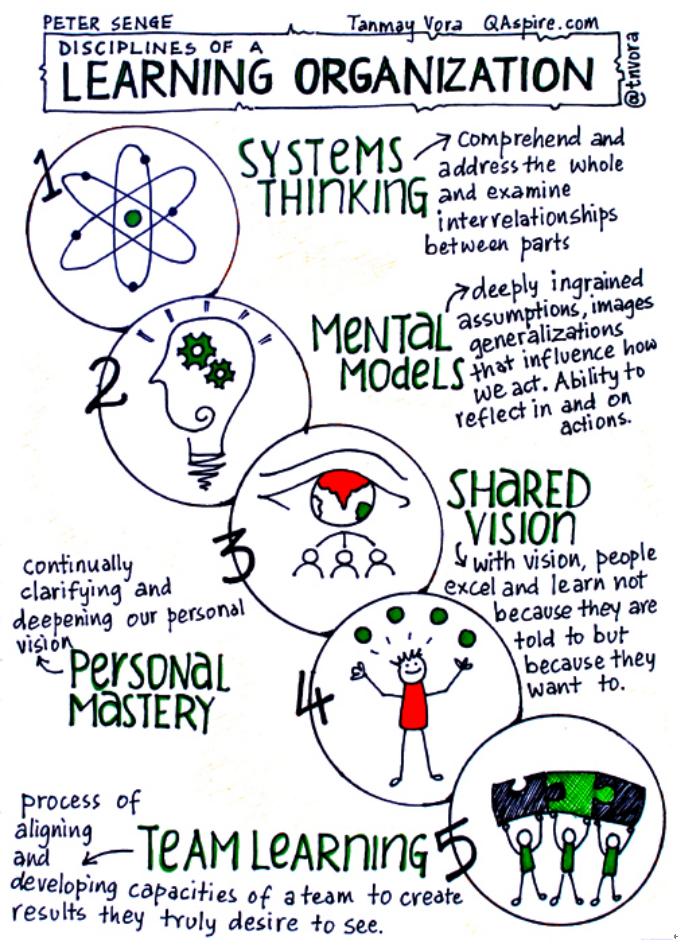 PETER SENGE
Tanmay Vora QAspire.com
DISCIPLINES OF A
LEARNING ORGANIZATION
@tnvora
1
SYSTEMS
THINKING
Comprehend and
address the whole
and examine
interrelationships
between parts
2
MENTAL
MODELS
deeply ingrained
assumptions, images
generalizations
that influence how
we act. Ability to
reflect in and on
actions.
3
SHARED
VISION
with vision, people
excel and learn not
because they are
told to but
because they
want to.
continually
clarifying and
deepening our personal
vision
PERSONAL
MASTERY
4
process of
aligning
and
TEAM LEARNING
5
developing capacities of a team to create
results they truly desire to see.